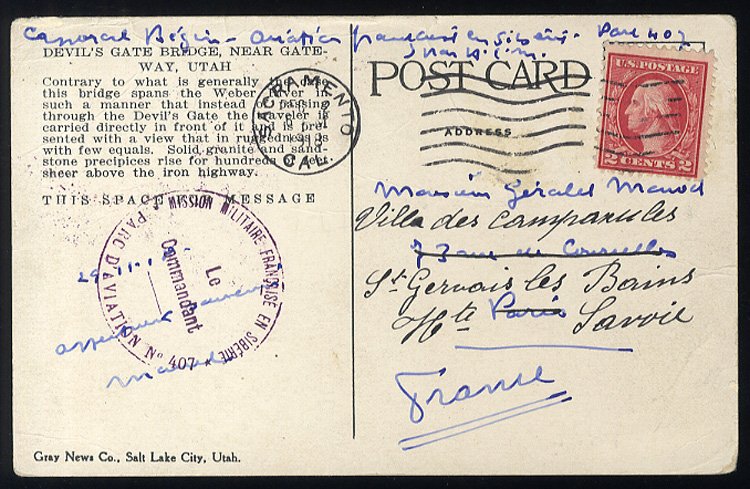 Caporal Bégin - Aviation française en Sibérie. Parc 407
DEVIL'S GATE BRIDGE, NEAR GATE-
WAY, UTAH
Contrary to what is generally the case
this bridge spans the Weber River in
such a manner that instead of passing
through the Devil's Gate the traveler is
carried directly in front of it and is pre-
sented with a view that in ruggedness is
with few equals. Solid granite and sand-
stone precipices rise for hundreds of feet
sheer above the iron highway.
THIS SPACE FOR MESSAGE
SACRAMENTO
CAL.
MISSION MILITAIRE FRANÇAISE EN SIBÉRIE
PARC D'AVIATION No 407
Le
Commandant
29-11-18
affectueux
Gray News Co., Salt Lake City, Utah.
POST CARD
ADDRESS
U.S. POSTAGE
2 CENTS 2
Monsieur Gérald Manod
Villa des Campanules
73 rue de Courcelles
St Gervais les Bains
Hte Paris Savoie
France